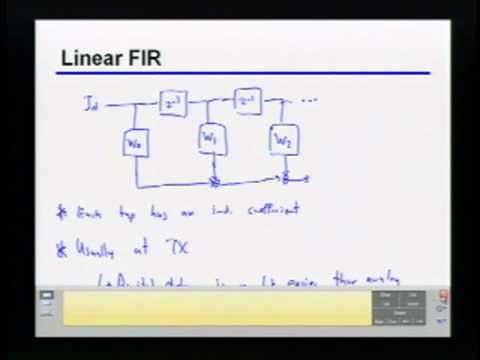 Linear FIR
In z⁻¹ z⁻¹ ...
W₀ W₁ W₂
* Each tap has an ind. coefficient
* Usually at TX
data is easier than analog